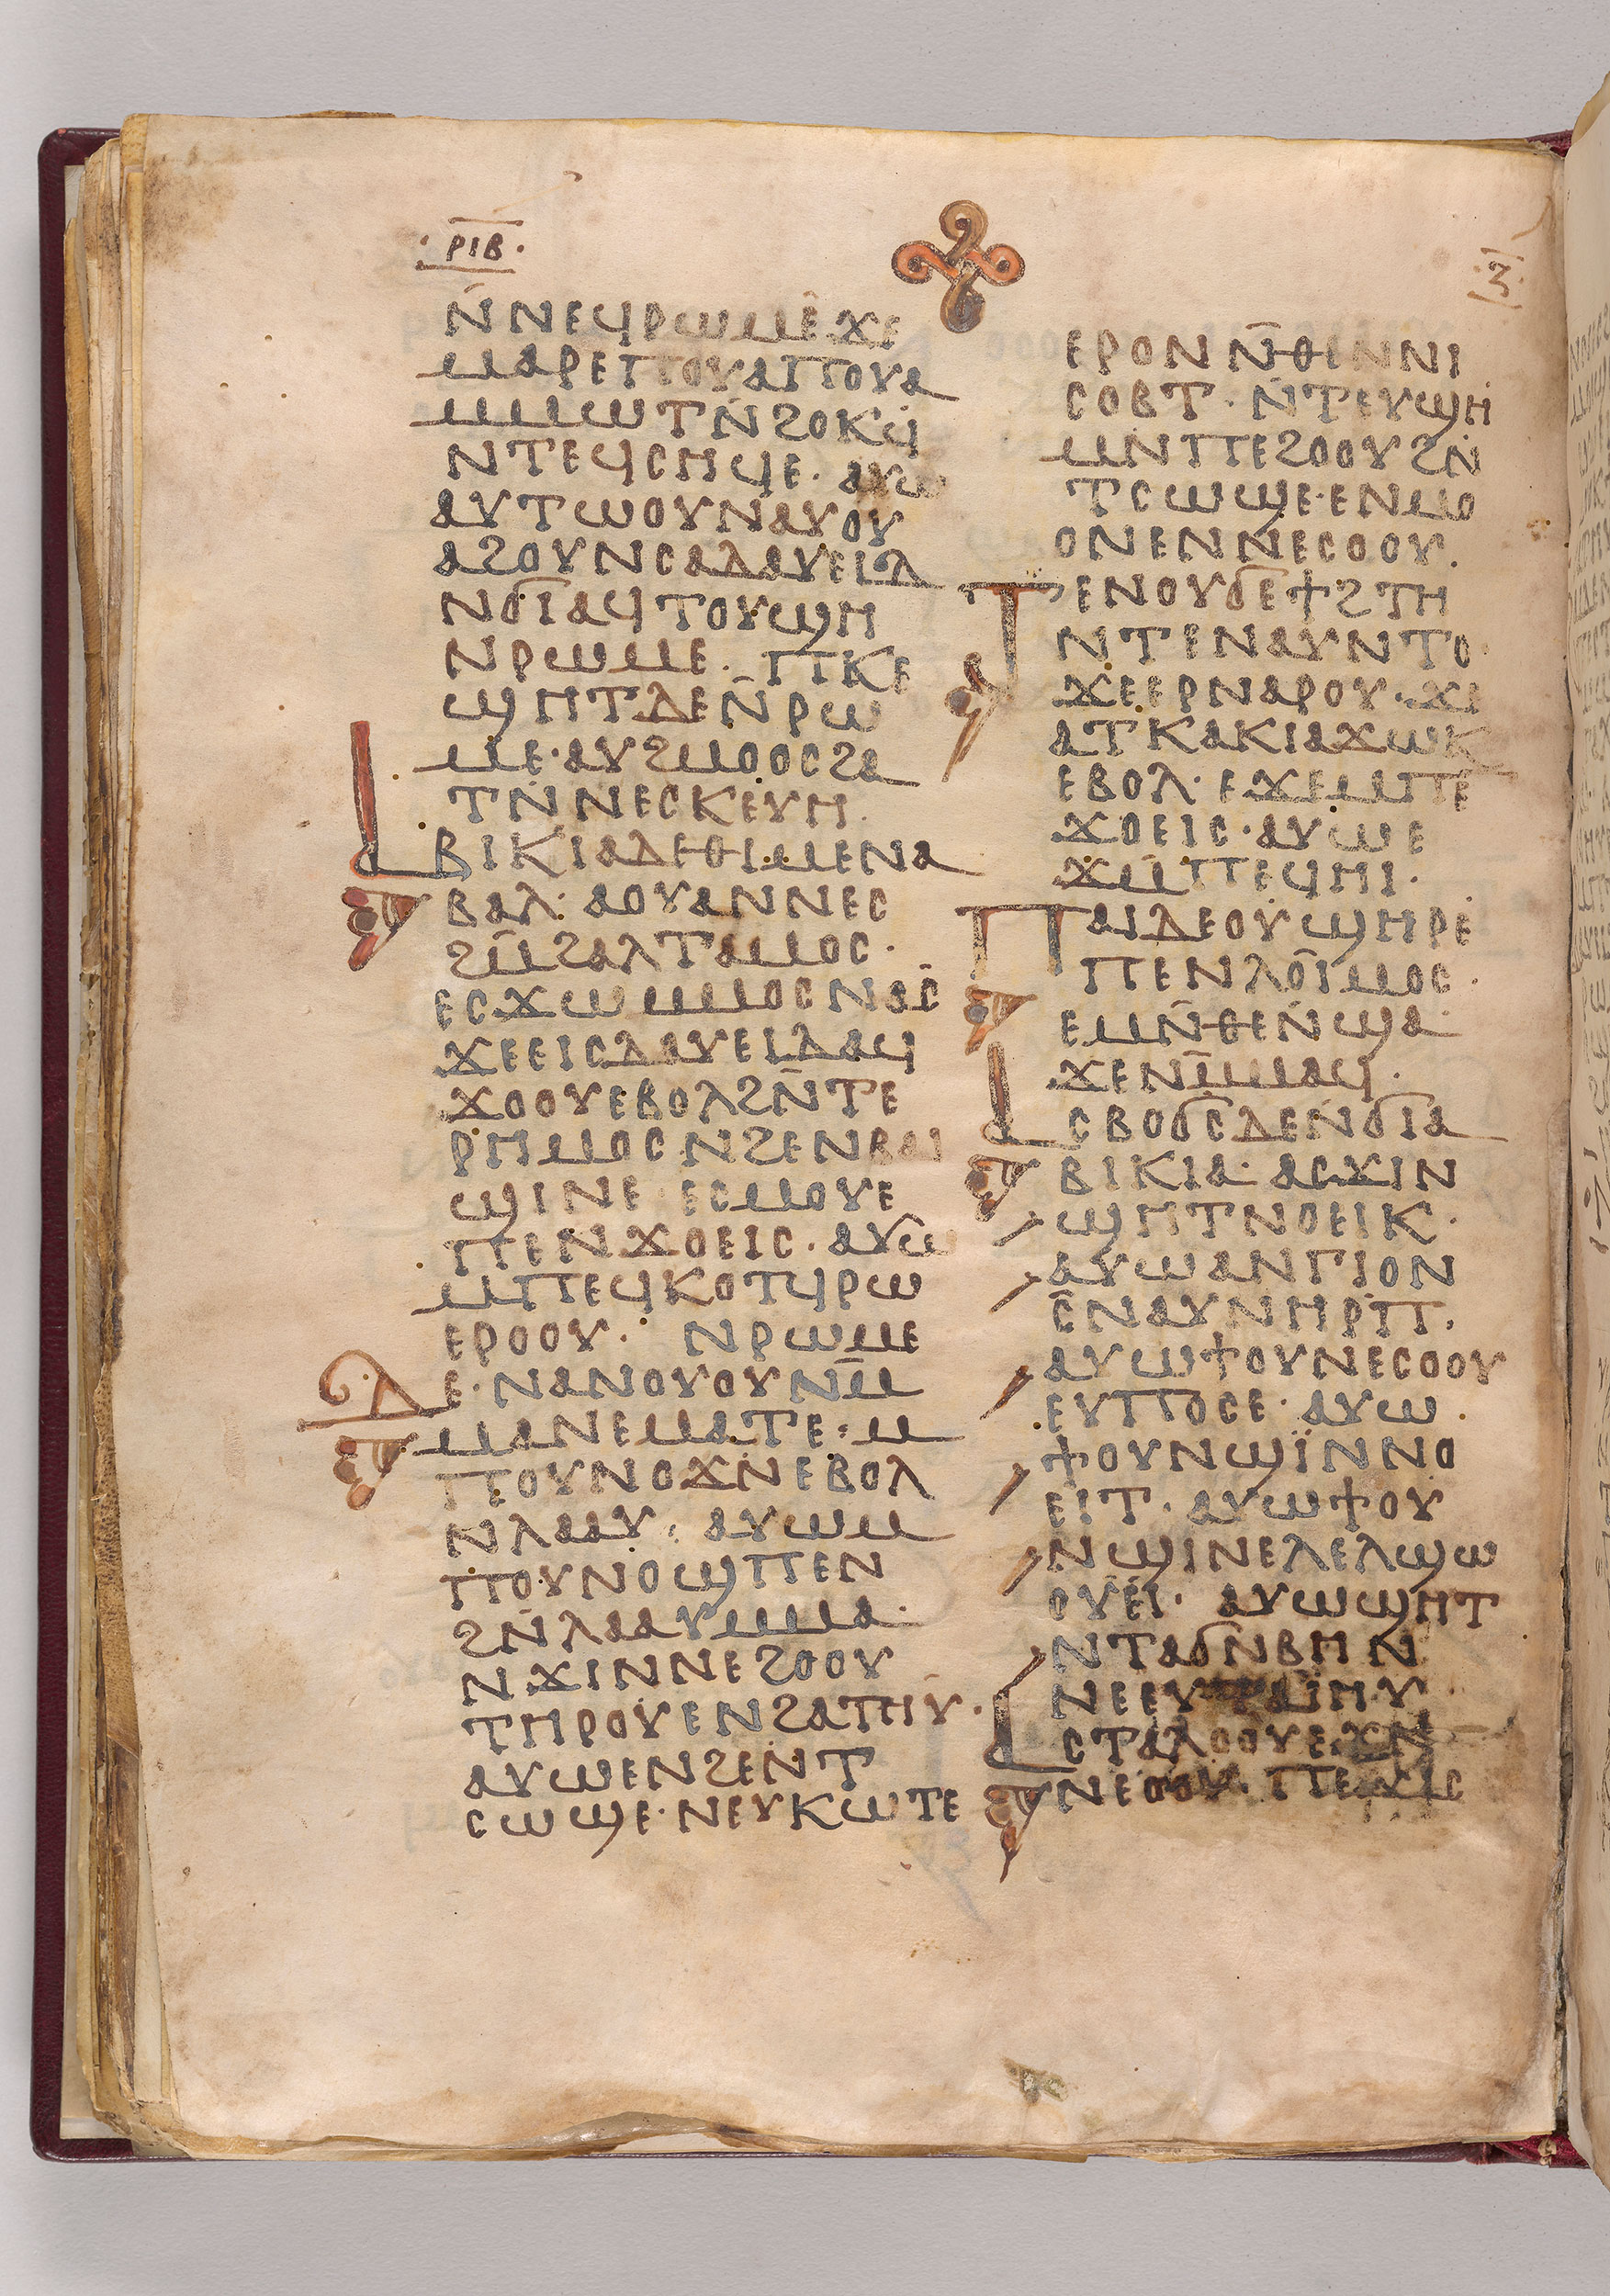 ⲣⲓⲃ
ⲛ̄ⲛⲉϥⲣⲱⲙⲉ ϫⲉ
ⲙⲁⲣⲉⲡⲟⲩⲁⲡⲟⲩⲁ
ⲙⲙⲱⲧⲛ̄ϩⲟⲕϥ̄
ⲛⲧⲉϥⲥⲏϥⲉ· ⲁⲩⲱ
ⲁⲩⲧⲱⲟⲩⲛⲁⲩⲟⲩ
ⲁϩⲟⲩⲛⲥⲁⲇⲁⲩⲉⲓⲇ
ⲛϭⲓⲁϥⲧⲟⲩϣⲏ
ⲛⲣⲱⲙⲉ· ⲡⲕⲉ
ϣⲏⲧⲇⲉⲛ̄ⲣⲱ
ⲙⲉ· ⲁⲩϩⲙⲟⲟⲥϩⲁ
ⲧⲛ̄ⲛⲉⲥⲕⲉⲩⲏ·
ⲁⲃⲓⲕⲓⲁⲇⲉⲑⲓⲙⲉⲛⲁ
ⲃⲁⲗ· ⲁⲟⲩⲁⲛⲛⲉⲥ
ϩⲙ̄ϩⲁⲗⲧⲁⲙⲟⲥ·
ⲉⲥϫⲱⲙⲙⲟⲥⲛⲁⲥ̄
ϫⲉⲉⲓⲥⲇⲁⲩⲉⲓⲇⲁϥ
ϫⲟⲟⲩⲉⲃⲟⲗϩⲛ̄ⲧⲉ
ⲣⲏⲙⲟⲥⲛϩⲉⲛⲃⲁⲓ
ϣⲓⲛⲉ ⲉⲥⲙⲟⲩⲉ
ⲡⲉⲛϫⲟⲉⲓⲥ· ⲁⲩⲱ
ⲙⲡⲉϥⲕⲟⲧϥⲣⲱ
ⲉⲣⲟⲟⲩ· ⲛⲣⲱⲙⲉ
ⲇⲉ· ⲛⲁⲛⲟⲩⲟⲩⲛⲙ̄
ⲙⲁⲛⲉⲙⲁⲧⲉ· ⲙ
ⲡⲟⲩⲛⲟϫⲛⲉⲃⲟⲗ
ⲛⲗⲁⲁⲩ· ⲁⲩⲱⲙ
ⲡⲟⲩⲛⲟϣⲡⲉⲛ
ϩⲛ̄ⲗⲁⲁⲩⲙⲙⲁ·
ⲛϫⲓⲛⲛⲉϩⲟⲟⲩ
ⲧⲏⲣⲟⲩⲉⲛϩⲁⲧⲏⲩ·
ⲁⲩⲱⲉⲛϩⲉⲛ̄ⲧ
ⲥⲱϣⲉ· ⲛⲉⲩⲕⲱⲧⲉ
ⲉⲣⲟⲛⲛ̄ⲑⲓⲛⲛⲓ
ⲥⲟⲃⲧ· ⲛ̄ⲧⲉⲩϣⲏ
ⲙⲛⲡⲉϩⲟⲟⲩϩⲛ̄
ⲧⲥⲱϣⲉ· ⲉⲛⲙⲟ
ⲟⲛⲉⲛⲛ̄ⲉⲥⲟⲟⲩ·
ⲧⲉⲛⲟⲩϭⲉϯϩⲧⲏ
ⲛⲧⲉⲛⲁⲩⲛⲧⲟ
ϫⲉⲉⲣⲛⲁⲣⲟⲩ· ϫⲉ
ⲁⲧⲕⲁⲕⲓⲁϫⲱⲕ
ⲉⲃⲟⲗ· ⲉϫⲉⲙⲡⲉ
ϫⲟⲉⲓⲥ· ⲁⲩⲱⲉ
ϫⲙ̄ⲡⲉϥⲏⲓ·
ⲡⲁⲓⲇⲉⲟⲩϣⲏⲣⲉ
ⲡⲉⲛⲗⲟⲓⲙⲟⲥ·
ⲉⲙⲛ̄ⲑⲉⲛ̄ϣⲁ
ϫⲉⲛⲙ̄ⲙⲁϥ·
ⲁⲥⲃⲟϭⲥⲇⲉⲛϭⲓⲁ
ⲃⲓⲕⲓⲁ· ⲁⲥϫⲓⲛ
ϣⲏⲧⲛⲟⲉⲓⲕ·
ⲁⲩⲱⲁⲛⲅⲓⲟⲛ
ⲥ̄ⲛⲁⲩⲛⲏⲣⲡ̄·
ⲁⲩⲱϯⲟⲩⲛⲉⲥⲟⲟⲩ
ⲉⲩⲡⲟⲥⲉ· ⲁⲩⲱ·
ϯⲟⲩⲛϣⲓ̈ⲛⲛⲟ
ⲉⲓⲧ· ⲁⲩⲱϯⲟⲩ
ⲛϣⲓⲛⲉⲗⲉⲗϣⲱ
ⲟⲩⲉⲓ· ⲁⲩⲱϣⲏⲧ
ⲛⲧⲁϭⲛⲃⲏⲛ
ⲛⲉⲉⲩ
ⲁⲥⲧⲁⲗⲟⲟⲩⲉϫⲛ̄
ⲛⲉⲟⲟⲩ·